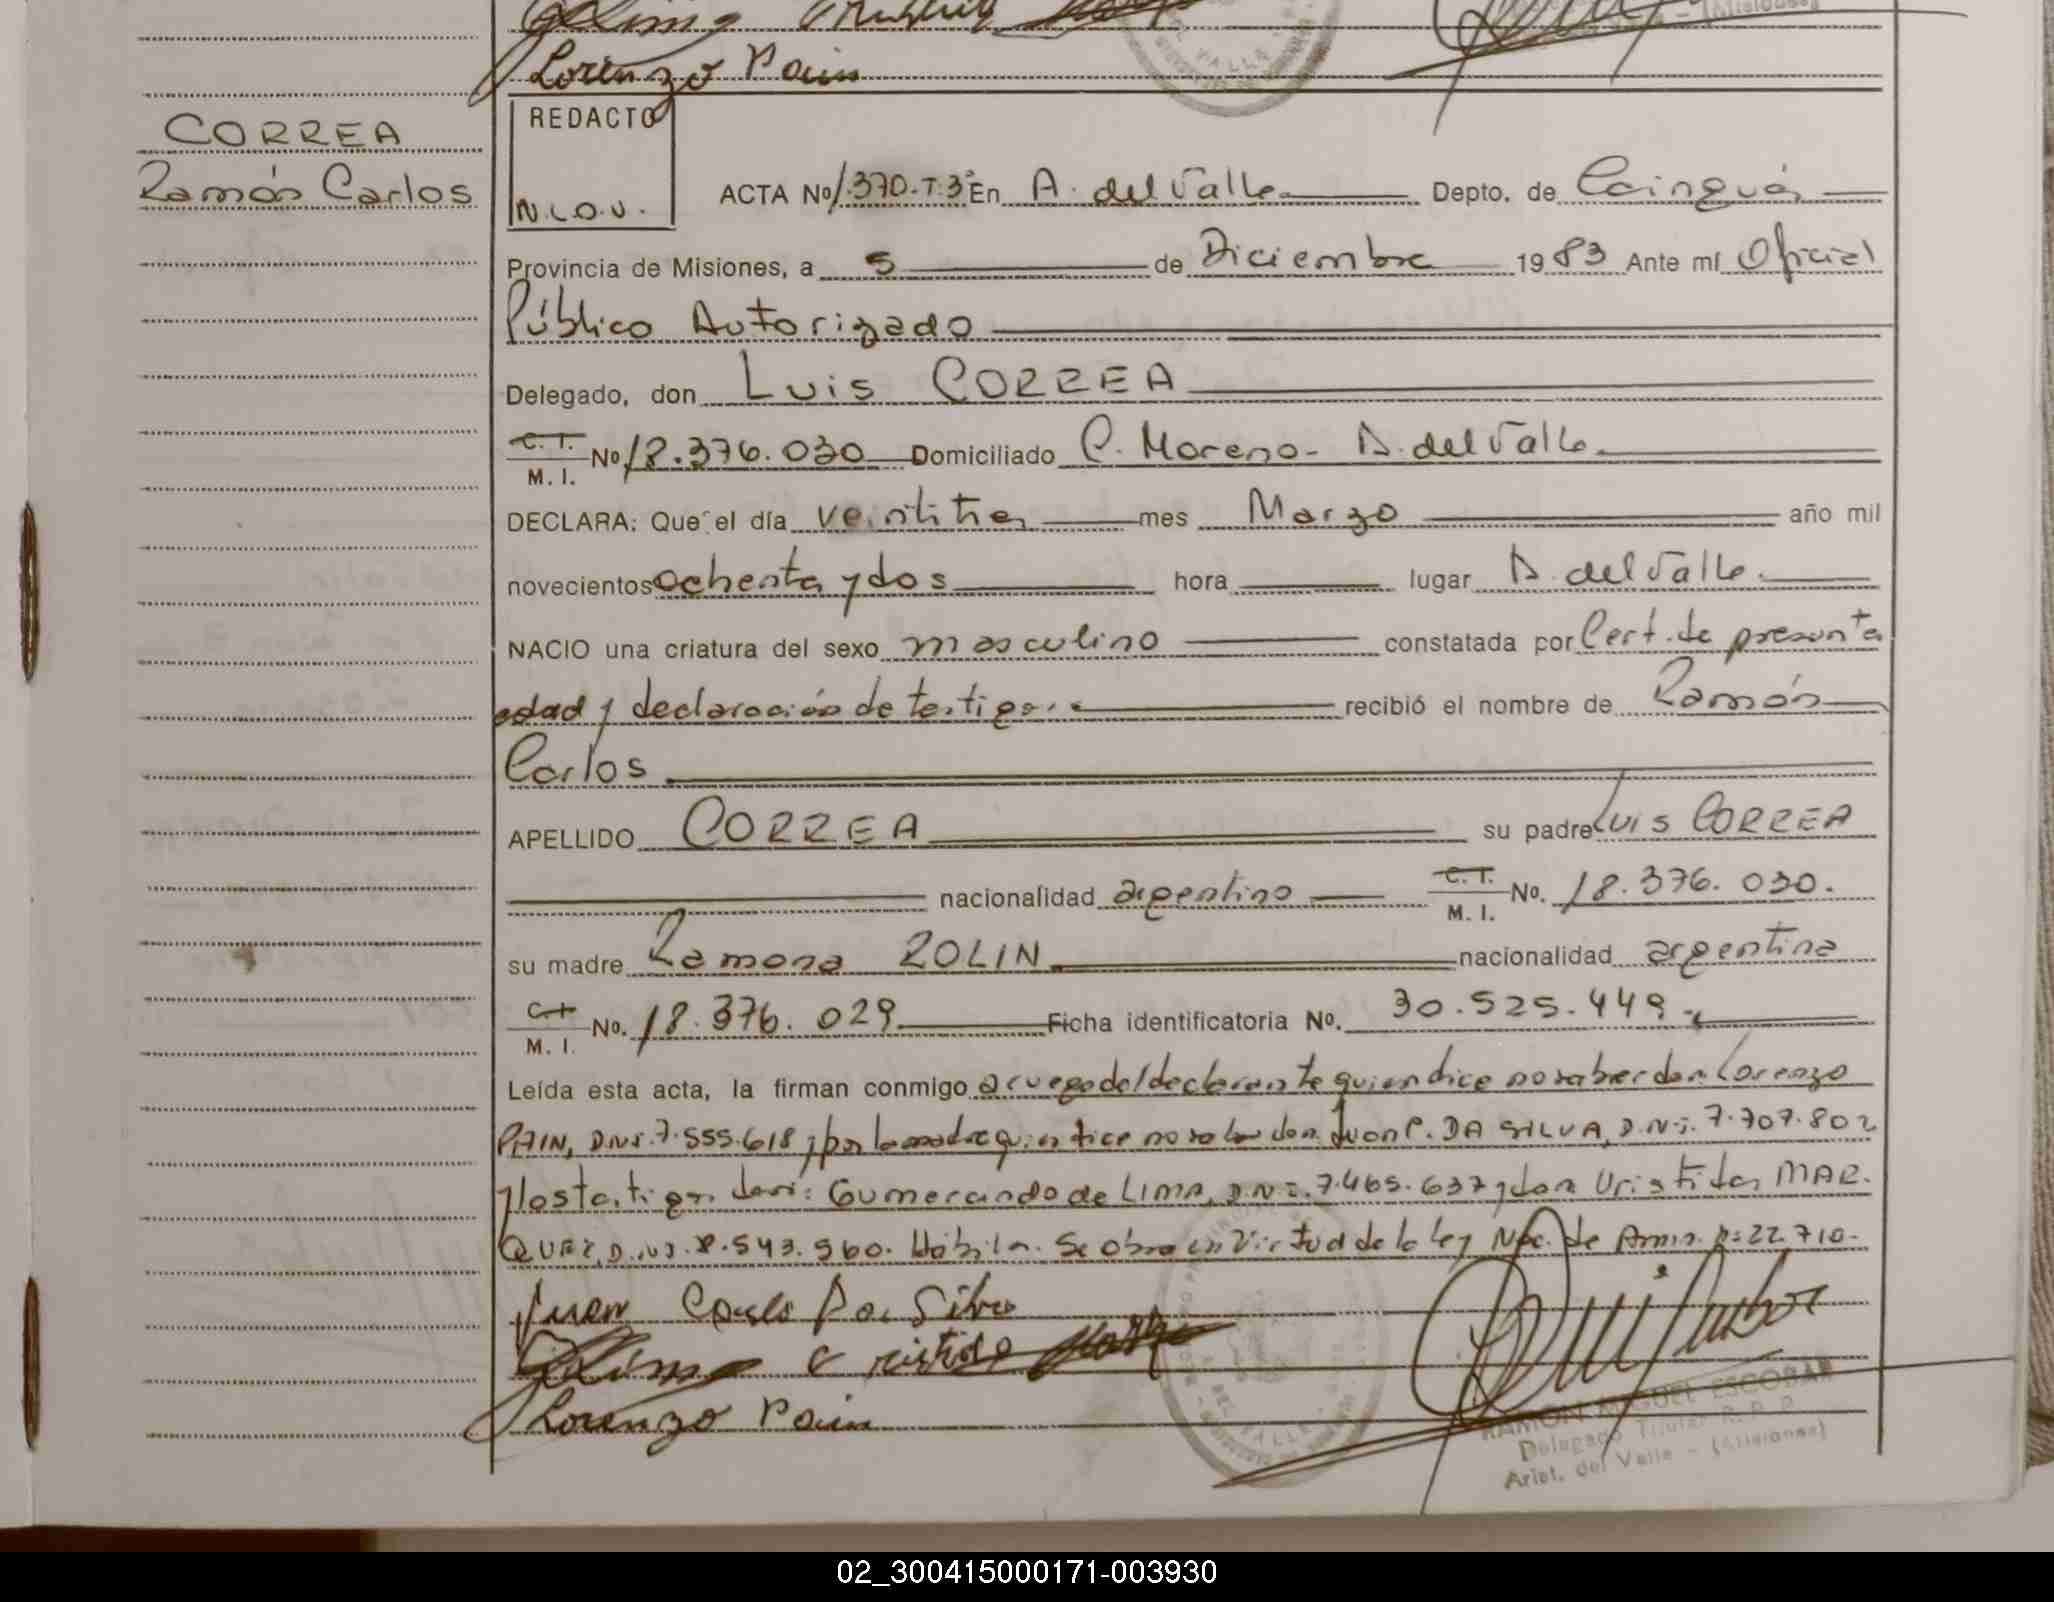 Lorenzo Pain
CORREA
Ramón Carlos
REDACTO
N.L.O.V.
ACTA Nº 1.370-T.3º En A. del Valle Depto. de Cainguás
Provincia de Misiones, a 5 de Diciembre 1983 Ante mí Oficial
Público Autorizado
Delegado, don Luis CORREA
C. I. M. I. Nº 18.376.030 Domiciliado C. Moreno - A. del Valle
DECLARA: Que el día veintitres mes Marzo año mil
novecientos ochenta y dos hora lugar A. del Valle
NACIO una criatura del sexo masculino constatada por Cert. de presunta
edad y declaración de testigos. recibió el nombre de Ramón
Carlos
APELLIDO CORREA su padre Luis CORREA
nacionalidad argentino C. I. M. I. No. 18.376.030.
su madre Ramona ROLIN nacionalidad argentina
C. I. M. I. No. 18.376.029 Ficha identificatoria No. 30.525.449.
Leída esta acta, la firman conmigo a ruego del declarante quien dice no saber don Lorenzo
PAIN, D.N.I. 7.555.618 y por la madre quien dice no saber don Juan C. DA SILVA, D.N.I. 7.707.802
y los testigos don: Gumercindo de LIMA, D.N.I. 7.465.637 y don Aristides MAR-
QUEZ, D.N.I. 8.543.960. Hábiles. Se obra en virtud de la ley Nac. de Amn. Nº 22.710.
Juan Carlo Da Silva
Lorenzo Pain
RAMON MIGUEL ESCOBAR
Delegado Titular R. P. P.
Arist. del Valle - (Misiones)
02_300415000171-003930